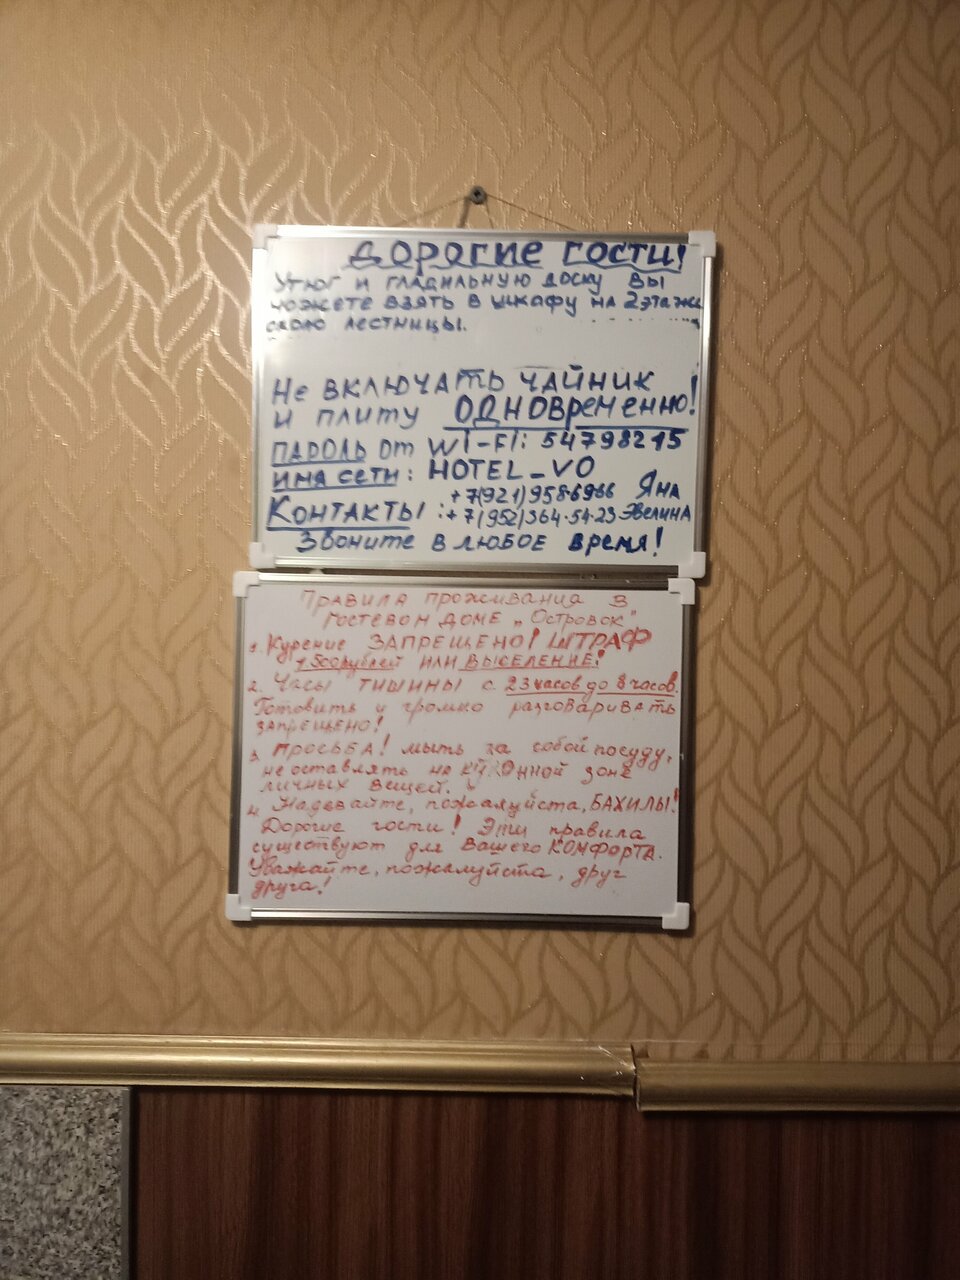 ДОРОГИЕ ГОСТИ!
Утюг и гладильную доску Вы
можете взять в шкафу на 2 этаже
около лестницы.
Не включать чайник
и плиту ОДНОВременно!
ПАРОЛЬ от WI-FI: 54798215
имя сети: HOTEL_VO
+7(921)958-69-66 Яна
Контакты: +7(952)364-54-23 Эвелина
Звоните в любое время!
Правила проживания в
гостевом доме „Островок"
1. Курение ЗАПРЕЩЕНО! ШТРАФ
1500 рублей ИЛИ ВЫСЕЛЕНИЕ!
2. Часы тишины с 23 часов до 8 часов.
Готовить и громко разговаривать
запрещено!
3. Просьба! мыть за собой посуду,
не оставлять на кухонной зоне
личных вещей.
4. Надевайте, пожалуйста, БАХИЛЫ!
Дорогие гости! Эти правила
существуют для Вашего КОМФОРТА.
Уважайте, пожалуйста, друг
друга!